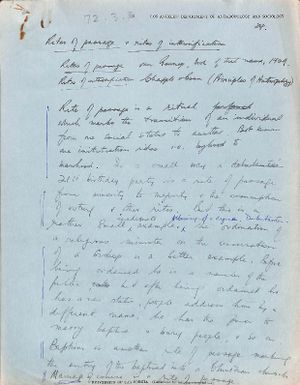 LOS ANGELES: DEPARTMENT OF ANTHROPOLOGY AND SOCIOLOGY
72.3.
24.
Rites of passage & rites of intensification
Rites of passage van Gennep, book of that name, 1909.
Rites of intensification Chapple & Coon (Principles of Anthropology)
Rite of passage is a ritual performed
which marks the transition of an individual
from one social status to another. Best known
are initiation rites i.e. boyhood to
manhood. In a small way a debutante's
21st birthday party is a rite of passage
from minority to majority & the assumption
of voting & other rites. But this is
rather small example, the ordination
of a religious minister or the consecration
of a bishop is a better example. Before
being ordained he is a member of the
public but after being ordained he
has a new status, people address him by a
different name, he has the power to
marry baptise & bury people, & so on
Baptism is another rite of passage marking
the entry of the baptised into Christian church.
Marriage of course